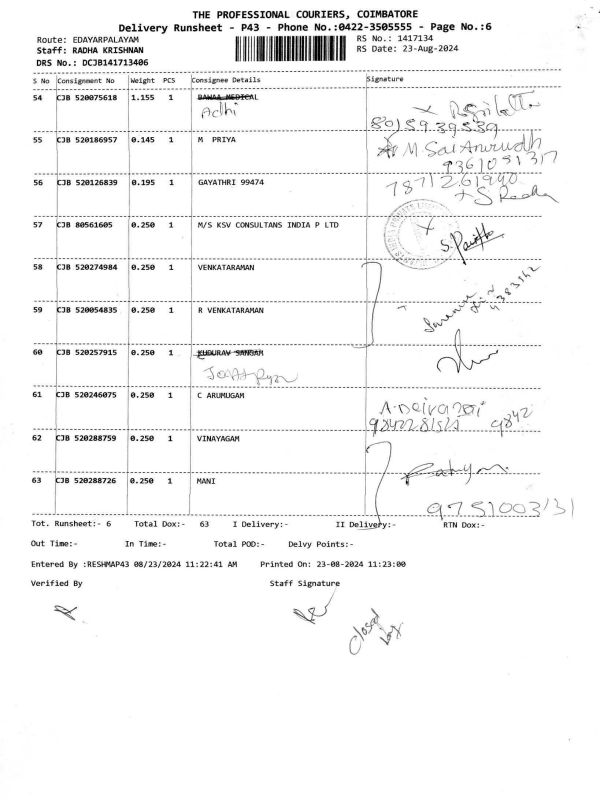 THE PROFESSIONAL COURIERS, COIMBATORE
Delivery Runsheet - P43 - Phone No.:0422-3505555 - Page No.:6
Route: EDAYARPALAYAM RS No.: 1417134
Staff: RADHA KRISHNAN RS Date: 23-Aug-2024
DRS No.: DCJB141713406
S No Consignment No Weight PCS Consignee Details Signature
54 CJB 520075618 1.155 1 BAWAA MEDICAL
Adhi
80159 39539
55 CJB 520186957 0.145 1 M PRIYA M Sai Anirudh
9361051317
56 CJB 520126839 0.195 1 GAYATHRI 99474 7871261940
57 CJB 80561605 0.250 1 M/S KSV CONSULTANS INDIA P LTD
58 CJB 520274984 0.250 1 VENKATARAMAN
59 CJB 520054835 0.250 1 R VENKATARAMAN
60 CJB 520257915 0.250 1 KUDURAV SANGAM
61 CJB 520246075 0.250 1 C ARUMUGAM
9842
62 CJB 520288759 0.250 1 VINAYAGAM
63 CJB 520288726 0.250 1 MANI
9751003131
Tot. Runsheet:- 6 Total Dox:- 63 I Delivery:- II Delivery:- RTN Dox:-
Out Time:- In Time:- Total POD:- Delvy Points:-
Entered By :RESHMAP43 08/23/2024 11:22:41 AM Printed On: 23-08-2024 11:23:00
Verified By Staff Signature
Closed